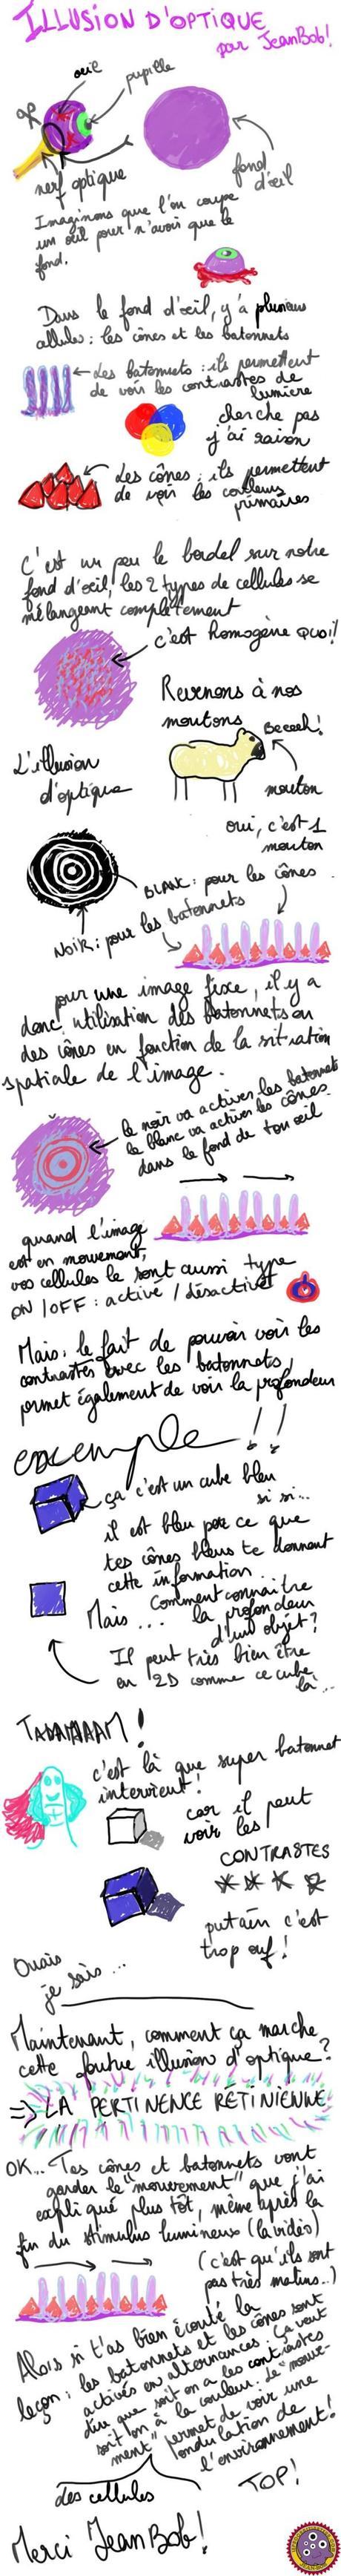 ILLUSION D'OPTIQUE
par JeanBob!
œil
pupille
nerf optique
fond
d'œil
Imaginons que l'on coupe
un œil pour n'avoir que le
fond.
Dans le fond d'œil, y'a plusieurs
allules : les cônes et les batonnets
Les batonnets : ils permettent
de voir les contrastes de
lumière
cherche pas
j'ai raison
Les cônes : ils permettent
de voir les couleurs
primaires
C'est un peu le bordel sur notre
fond d'œil, les 2 types de cellules se
mélangeant complètement
c'est homogène quoi!
Revenons à nos
moutons
Beeeeh!
mouton
oui, c'est 1
mouton
L'illusion
d'optique
BLANC : pour les cônes
NOIR : pour les batonnets
pour une image fixe, il y a
donc utilisation des batonnets ou
des cônes en fonction de la situation
spatiale de l'image.
le noir va activer les batonnets
le blanc va activer les cônes
dans le fond de ton œil
quand l'image
est en mouvement,
vos cellules le sont aussi type
ON/OFF : activé / désactivé
Mais, le fait de pouvoir voir les
contrastes avec les batonnets,
permet également de voir la profondeur
exemple !!
ça c'est un cube bleu
si si...
il est bleu parce que
tes cônes bleus te donnent
cette information.
Mais... Comment connaitre
la profondeur
d'un objet?
Il peut très bien être
en 2D comme ce cube
là...
TADAAAAM!
c'est là que super batonnet
intervient!
car il peut
voir les
CONTRASTES
putain c'est
trop ouf!
Ouais
je sais...
Maintenant, comment ça marche
cette foutue illusion d'optique?
=> LA PERTINENCE RETINIENNE
OK... Tes cônes et batonnets vont
garder le "mouvement" que j'ai
expliqué plus tôt, même après la
fin du stimulus lumineux (la vidéo)
(c'est qu'ils sont
pas très malins..)
Alors si t'as bien écouté la
leçon : les batonnets et les cônes sont
activés en alternances. Ça veut
dire que soit on a les contrastes
soit on a la couleur. Le "mouve-
ment" permet de voir une
ondulation de
l'environnement!
des cellules
TOP!
Merci JeanBob!